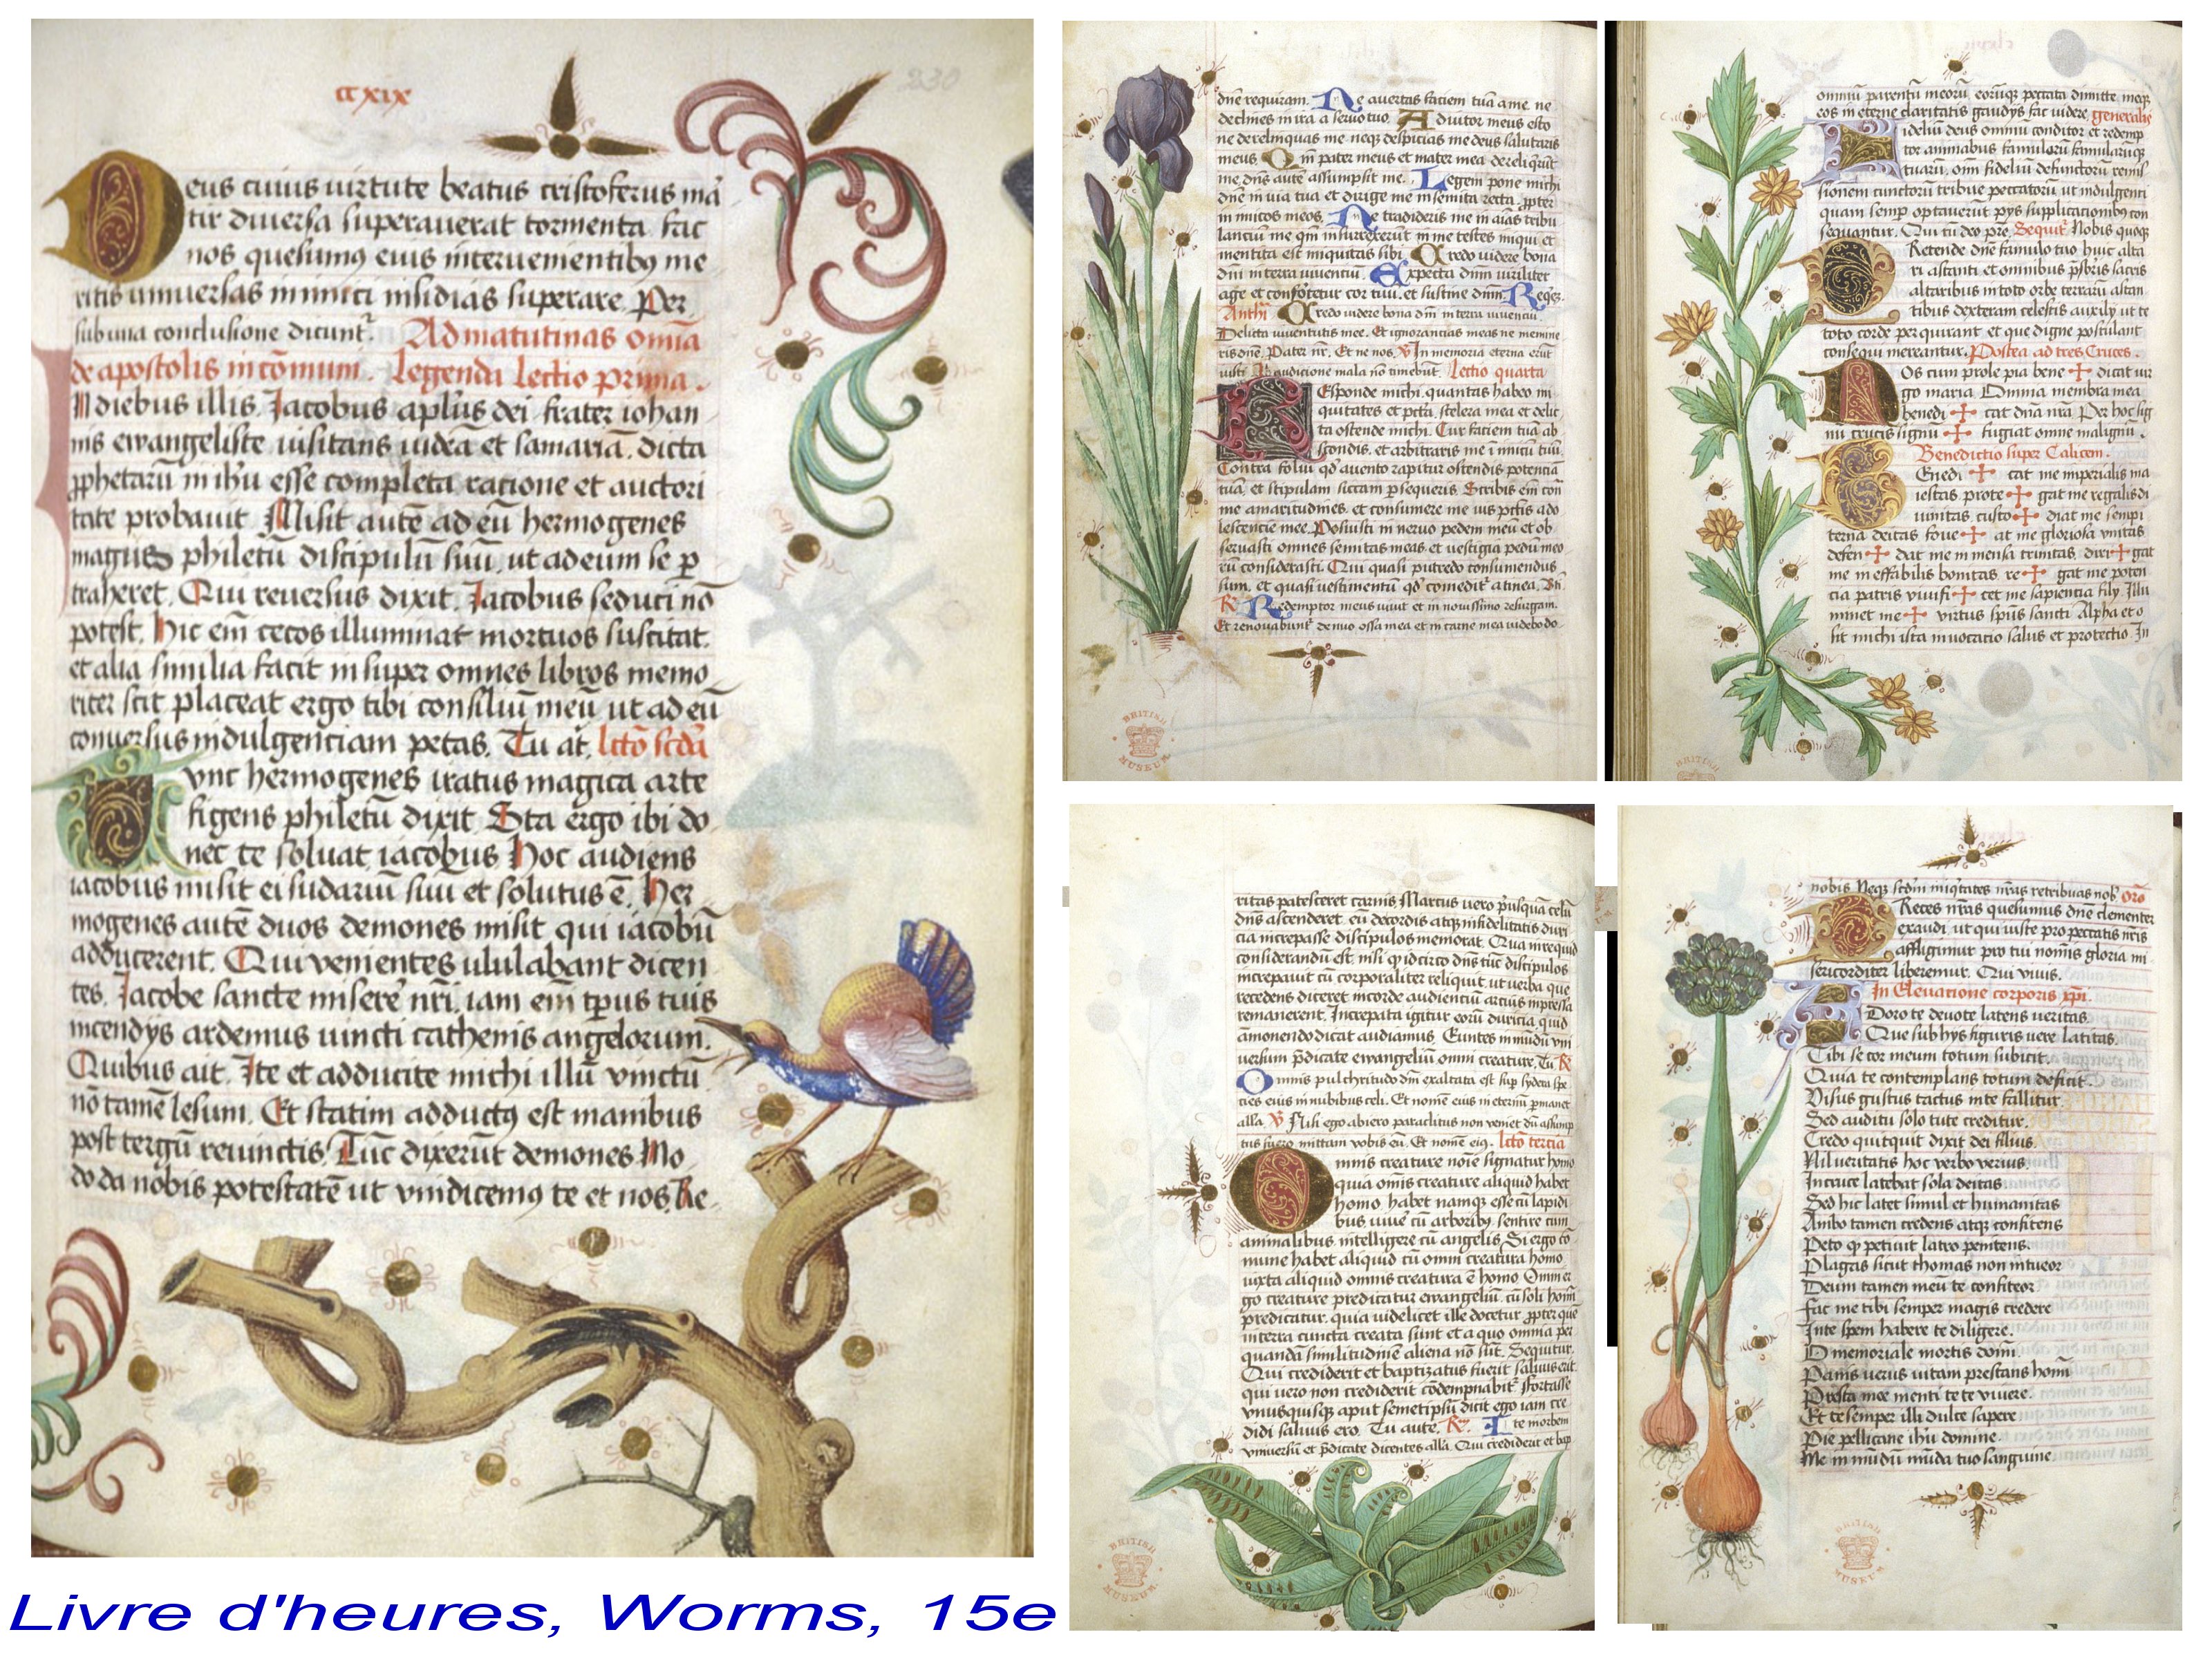 ccxix
230
Deus cuius uirtute beatus cristoferus mã
tir diuersa superauerat tormenta fac
nos quesumꝯ eius interuenientibꝯ me
ritis uniuersas inimici insidias superare. Per
sub una conclusione dicunt. Ad matutinas omĩa
de apostolis in cõmuni. Legenda Lectio prima.
In diebus illis. Jacobus aplus dei frater iohan
nis ewangeliste uisitans iudeã et samariã. dicta
ꝓphetarũ in ihũ esse completa racione et auctori
tate probauit. Misit autẽ ad eũ hermogenes
magus philetũ discipulũ suũ, ut ad eum se ꝑ
traheret. Qui reuersus dixit. Jacobus seduci nõ
potest. hic em̃ cecos illuminat mortuos suscitat.
et alia similia facit insuper omnes libros memo
riter scit placeat ergo tibi consiliũ meũ ut ad eũ
conuersus indulgenciam petas. Tu at. lctõ scdã
Tunc hermogenes iratus magica arte
figens philetũ dixit. Sta ergo ibi do
nec te soluat iacobus. hoc audiens
iacobus misit ei sudariũ suũ et solutus ẽ. her
mogenes autẽ duos demones misit qui iacobũ
adducerent. Qui uenientes ululabant dicen
tes. Jacobe sancte misere nri. iam em̃ tpus tuis
incendys ardemus uincti cathenis angelorum.
Quibus ait. Ite et adducite michi illũ vinctũ
nõ tamẽ lesum. Et statim adductꝯ est manibus
post tergũ reuinctis. Tũc dixerũt demones Mo
do da nobis potestatẽ ut vindicemꝯ te et nos. Re
Livre d'heures, Worms, 15e
dñe requiram. Ne auertas faciem tuã a me. ne
declines in ira a seruo tuo. Adiutor meus esto
ne derelinquas me. neqꝫ despicias me deus salutaris
meus. Qm̃ pater meus et mater mea dereliq̃rũt
me. dñs autẽ assumpsit me. Legem pone michi
dñe in via tua et dirige me in semita recta. ꝓpter
inimicos meos. Ne tradideris me in aĩas tribu
lanciũ me qm̃ insurrexerũt in me testes iniqui et
mentita est iniquitas sibi. Credo videre bona
dñi in terra uiuenciũ. Expecta dñm uiriliter
age et confortetur cor tuũ. et sustine dñm. Reqez.
Anthi Credo videre bona dñi in terra uiuenciũ.
Delicta iuuentutis mee. Et ignorancias meas ne memine
ris dñe. Pater nr. Et ne nos. V In memoria eterna erũt
iusti. Ab audicione mala nõ timebũt. Lectio quarta
Responde michi. quantas habeo ini
quitates et pctã. scelera mea et delic
ta ostende michi. Cur faciem tuã ab
scondis. et arbitraris me inimicũ tuũ.
Contra foliũ qd̃ a uento rapitur ostendis potenciã
tuã. et stipulam siccam persequeris. Scribis em̃ con
me amaritudines. et consumere me uis pctis ado
lescencie mee. Posuisti in neruo pedem meũ et ob
seruasti omnes semitas meas. et uestigia pedũ meo
rũ considerasti. Qui quasi putredo consumendus
sum. et quasi uestimentũ qd̃ comeditꝛ a tinea.
R Redemptor meus uiuit et in nouissimo resurgam.
Et renouabuntꝛ denuo ossa mea et in carne mea videbo do
BRITISH
MUSEUM
omniũ parentũ meorũ. eorũqꝫ peccata dimitte. meqꝫ
eos in eterne claritatis gaudys fac videre. generalis
Fidelium deus omniũ conditor et redemp
tor animabus famulorũ famularũqꝫ
tuarũ. omniũ fideliũ defunctorũ remis
sionem cunctorũ tribue peccatorũ ut indulgenci
quam semp̃ optauerũt pys supplicacionibꝯ con
sequantur. Qui cũ deo pre. Sequitꝛ Nobis quoqꝫ
Pretende dñe famulo tuo huic alta
ri astanti et omnibus p̃sbris sacris
altaribus in toto orbe terrarũ astan
tibus dexteram celestis auxily ut te
toto corde perquirant et que digne postulant
consequi mereantur. Postea ad tres Cruces.
Nos cum prole pia bene + dicat uir
go maria. Omnia membra mea
benedi + cat dña nrã. Per hoc sig
nũ crucis signũ + fugiat omne malignũ.
Benedictio super Calicem.
Benedi + cat me imperialis ma
iestas. prote + gat me regalis di
uinitas. custo + diat me sempi
terna deitas. foue + at me gloriosa vnitas
defen + dat me inmensa trinitas. diri + gat
me ineffabilis bonitas. re + gat me poten
cia patris. viuifi + cet me sapiencia fily. Illu
minet me + virtus spũs sancti. Alpha et o
sit michi ista inuocatio salus et protectio. In
ritas patesceret carnis. Marcus uero p̃usquã celũ
dñs ascenderet. eũ de cordis atqꝫ infidelitatis duri
cia increpasse discipulos memorat. Qua in re quid
considerandũ est. nisi qꝫ idcirco dñs tũc discipulos
increpauit cũ corporaliter reliquit. ut verba que
recedens diceret. in corde audienciũ arcius impressa
remanerent. Increpata igitur eorũ duricia quid
ãmonendo dicat audiamus. Euntes in mũdũ vni
uersum p̃dicate ewangeliũ omni creature. Tu R
Omnis pulchritudo dñi exaltata est sup̃ sydera. spe
cies eius in nubibus celi. Et nomẽ eius in eternũ ꝑmanet
alla. V Nisi ego abiero paraclitus non veniet. dũ assump
tus fuero mittam vobis eũ. Et nomẽ eiꝯ. lctõ tercia
Omnis creature noĩe signatur homo
quia om̃is creature aliquid habet
homo. habet namqꝫ esse cũ lapidi
bus. uiue cũ arboribꝯ. sentire cum
animalibus. intelligere cũ angelis. Si ergo cõ
mune habet aliquid cũ omni creatura homo
iuxta aliquid omnis creatura ẽ homo. Omni er
go creature predicatur ewangeliũ. cũ soli homĩ
predicatur. quia uidelicet ille docetur. ꝓpter quẽ
in terra cuncta creata sunt et a quo omnia per
quandã similitudinẽ aliena nõ sũt. Sequitur.
Qui crediderit et baptizatus fuerit saluus erit.
qui uero non crediderit cõdempnabitꝛ. Ffortasse
vnusquisqꝫ aput semetipsũ dicit ego iam cre
didi saluus ero. Tu autẽ. R. Ite in orbem
vniuersũ et p̃dicate dicentes alla. Qui crediderit et bap
BRITISH
MUSEUM
nobis. Neqꝫ scdm̃ iniq̃tates nr̃as retribuas nob̃. orõ
Preces nr̃as quesumus dñe clementer
exaudi. ut qui iuste pro peccatis nr̃is
affligimur pro tui nomĩs gloria mi
sericorditer liberemur. Qui viuis.
In Eleuacione corporis xp̃i.
Adoro te deuote latens ueritas
Que sub hys figuris uere latitas.
Tibi se cor meum totum subicit.
Quia te contemplans totum deficit.
Visus gustus tactus in te fallitur.
Sed auditu solo tute creditur.
Credo quitquit dixit dei filius.
Nil ueritatis hoc verbo verius.
In cruce latebat sola deitas
Sed hic latet simul et humanitas
Ambo tamen credens atqꝫ confitens
Peto qꝫ petiuit latro penitens.
Plagas sicut thomas non intueor
Deum tamen meũ te confiteor
Fac me tibi semper magis credere
In te spem habere te diligere.
O memoriale mortis domĩ.
Panis uerus uitam prestans homĩ
Presta mee menti te te viuere.
Et te semper illi dulce sapere
Pie pellicane ihũ domine.
Me in mũdũ mũda tuo sanguine
BRITISH
MUSEUM